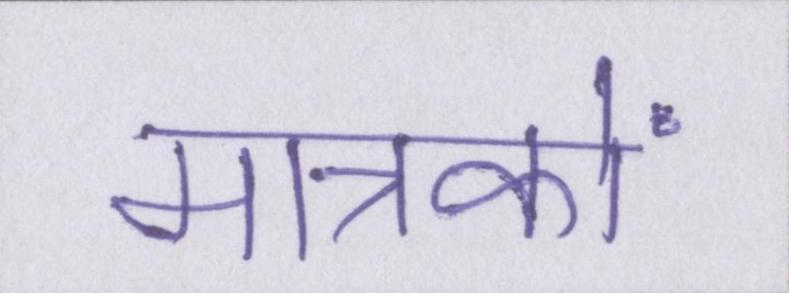 मात्रकों